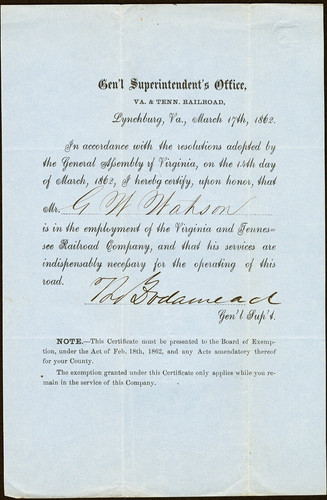 Gen'l Superintendent's Office,
VA. & TENN. RAILROAD,
Lynchburg, Va., March 17th, 1862.
In accordance with the resolutions adopted by
the General Assembly of Virginia, on the 14th day
of March, 1862, I hereby certify, upon honor, that
Mr. G W Watson
is in the employment of the Virginia and Tennes-
see Railroad Company, and that his services are
indispensably necessary for the operating of this
road.
Gen'l Sup't.
NOTE.—This Certificate must be presented to the Board of Exemp-
tion, under the Act of Feb. 18th, 1862, and any Acts amendatory thereof
for your County.
The exemption granted under this Certificate only applies while you re-
main in the service of this Company.